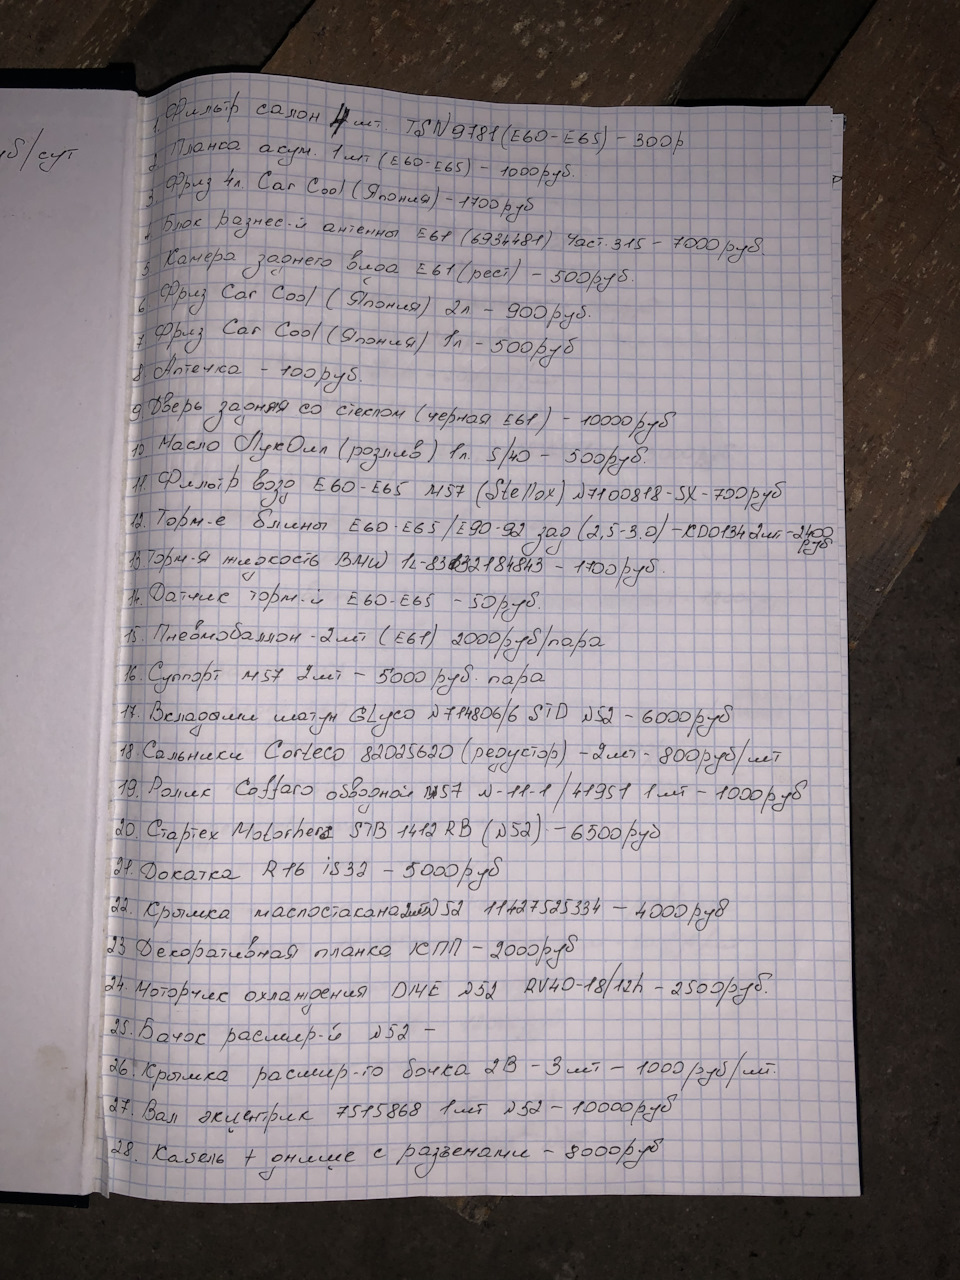 уб/сут
1. Фильтр салон 4 шт. TSN 9781 (E60-E65) - 300р
2 Планка асум. 1шт (E60-E65) - 1000руб.
3 Фриз 4л. Car Cool (Япония) - 1700руб
4 Блок разнес-й антенны E61 (6934481) Част. 315 - 7000руб.
5 Камера заднего вида E61 (рест) - 500руб.
6 Фриз Car Cool (Япония) 2л - 900руб.
7 Фриз Car Cool (Япония) 1л - 500руб
8 Аптечка - 100руб.
9. Дверь задняя со стеклом (черная E61) - 10000руб
10 Масло ЛукОил (розлив) 1л. 5/40 - 500руб.
11. Фильтр возд E60-E65 M57 (Stellox) N7100818-SX - 700руб
12. Торм-е блины E60-E65/E90-92 зад (2,5-3.0) - KD0134 2шт - 2400
руб
13 Торм-я жидкость BMW 1L - 83132184843 - 1100руб.
14. Датчик торм-й E60-E65 - 50руб.
15. Пневмобаллон - 2шт (E61) 2000руб/пара
16. Суппорт M57 2шт - 5000руб. пара
17. Вкладыши шатун GLyco N714806/6 STD N52 - 6000руб
18. Сальники Corteco 82025620 (редуктор) - 2шт - 800руб/шт
19. Ролик Caffaro обводной M57 N-11-1/41951 1шт - 1000руб
20. Стартех Motorherz STB 1412 RB (N52) - 6500руб
21. Докатка R16 is32 - 5000руб
22. Крышка маслостакана 2шт N52 11427525334 - 4000руб
23 Декоративная планка КПП - 2000руб
24. Моторчик охлаждения DME N52 RV40-18/12h - 2500руб.
25. Бачок расшир-й N52 -
26. Крышка расшир-го бочка 2B - 3шт - 1000руб/шт.
27. Вал эксцентрик 7515868 1шт N52 - 10000руб
28. Кабель + днище с разъемами - 8000руб